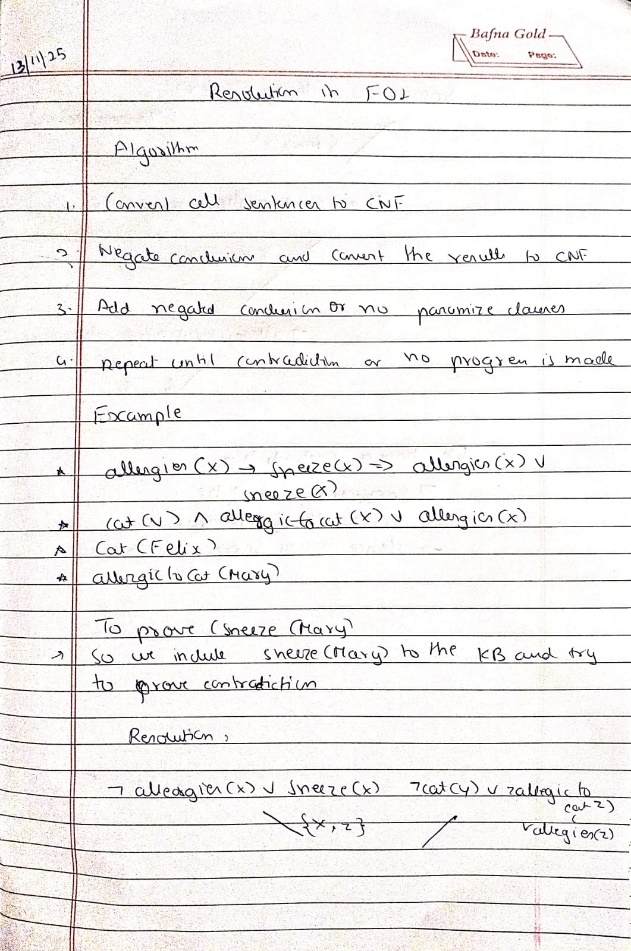 Bafna Gold
Date: Page:
13/11/25
Resolution in FOL
Algorithm
1. Convert all sentences to CNF
2. Negate conclusion and convert the result to CNF
3. Add negated conclusion or no paramize clauses
4. repeat until contradiction or no progress is made
Example
* allergies (x) → sneeze(x) => allergies (x) ∨
sneeze(x)
* cat (Y) ∧ allergic to cat (X) ∨ allergies (x)
* Cat (Felix)
* allergic to Cat (Mary)
To prove (sneeze (Mary)
→ So we include sneeze (Mary) to the KB and try
to prove contradiction
Resolution,
¬ allergies (x) ∨ sneeze (x) ¬cat(y) ∨ ¬allegic to
cat z)
{x, z} ∨allegies(z)